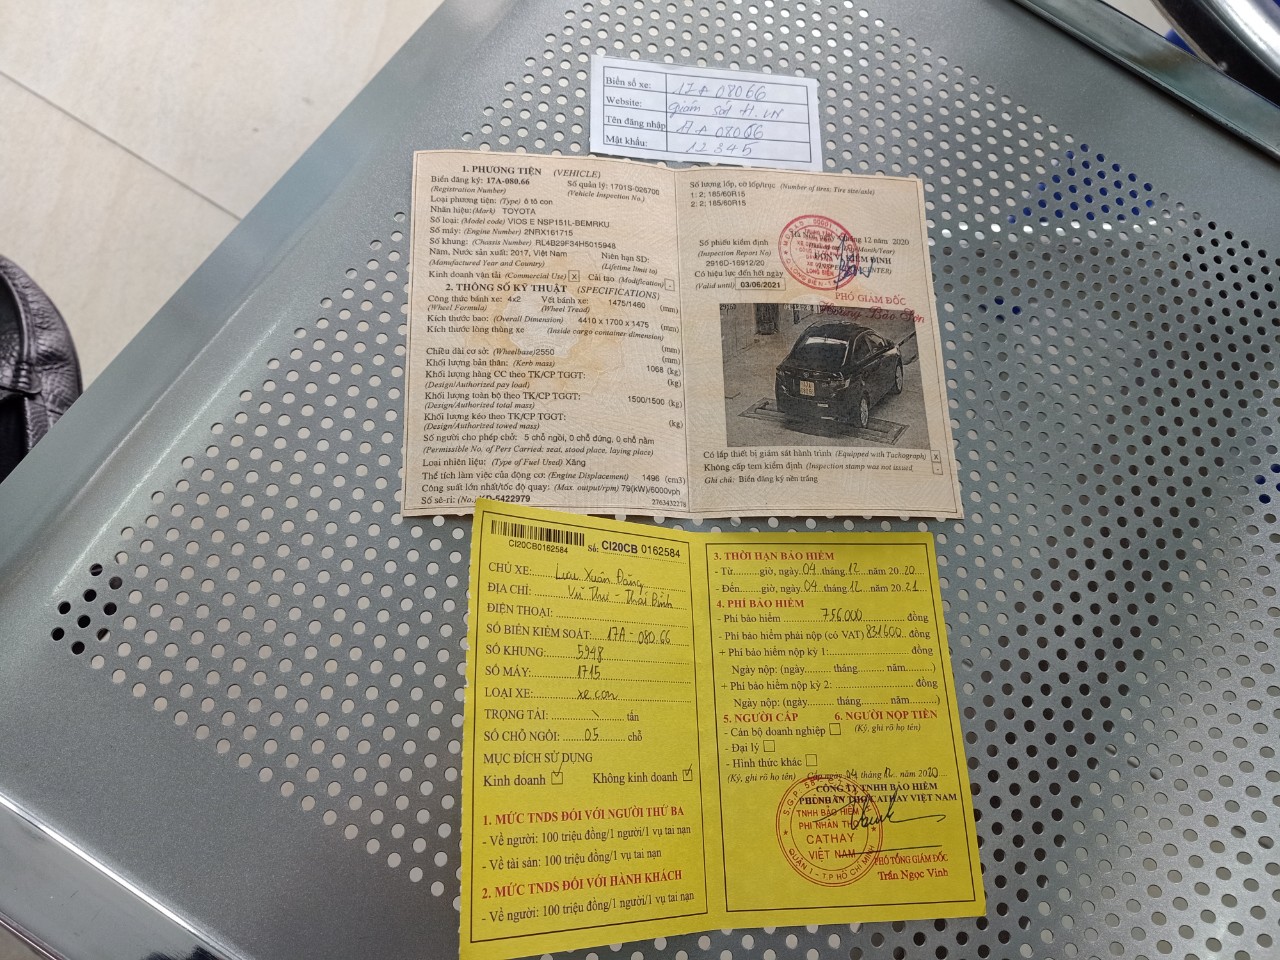 Biển số xe: 17A 08066
Website: giám sát H.VN
Tên đăng nhập 17A 08066
Mật khẩu: 12345
1. PHƯƠNG TIỆN (VEHICLE)
Biển đăng ký: 17A-080.66 Số quản lý: 1701S-026706
(Registration Number) (Vehicle Inspection No.)
Loại phương tiện: (Type) ô tô con
Nhãn hiệu: (Mark) TOYOTA
Số loại: (Model code) VIOS E NSP151L-BEMRKU
Số máy: (Engine Number) 2NRX161715
Số khung: (Chassis Number) RL4B29F34H5015948
Năm, Nước sản xuất: 2017, Việt Nam Niên hạn SD:
(Manufactured Year and Country) (Lifetime limit to)
Kinh doanh vận tải (Commercial Use) x Cải tạo (Modification) -
2. THÔNG SỐ KỸ THUẬT (SPECIFICATIONS)
Công thức bánh xe: 4x2 Vết bánh xe: 1475/1460 (mm)
(Wheel Formula) (Wheel Tread)
Kích thước bao: (Overall Dimension) 4410 x 1700 x 1475 (mm)
Kích thước lòng thùng xe (Inside cargo container dimension)
(mm)
Chiều dài cơ sở: (Wheelbase)2550 (mm)
Khối lượng bản thân: (Kerb mass) 1068 (kg)
Khối lượng hàng CC theo TK/CP TGGT: (kg)
(Design/Authorized pay load)
Khối lượng toàn bộ theo TK/CP TGGT: 1500/1500 (kg)
(Design/Authorized total mass)
Khối lượng kéo theo TK/CP TGGT: (kg)
(Design/Authorized towed mass)
Số người cho phép chở: 5 chỗ ngồi, 0 chỗ đứng, 0 chỗ nằm
(Permissible No. of Pers Carried: seat, stood place, laying place)
Loại nhiên liệu: (Type of Fuel Used) Xăng
Thể tích làm việc của động cơ: (Engine Displacement) 1496 (cm3)
Công suất lớn nhất/tốc độ quay: (Max. output/rpm) 79(kW)/6000vph
Số sê-ri: (No.) KD-5422979 2763432278
Số lượng lốp, cỡ lốp/trục (Number of tires; Tire size/axle)
1: 2; 185/60R15
2: 2; 185/60R15
tháng 12 năm 2020
Số phiếu kiểm định ĐƠN VỊ KIỂM ĐỊNH
(Inspection Report No)
2916D-16912/20
Có hiệu lực đến hết ngày
(Valid until) 03/06/2021
PHÓ GIÁM ĐỐC
Hoàng Bảo Sơn
Có lắp thiết bị giám sát hành trình (Equipped with Tachograph) x
Không cấp tem kiểm định (Inspection stamp was not issued -
Ghi chú: Biển đăng ký nền trắng
CI20CB0162584 Số: CI20CB 0162584
CHỦ XE: Lưu Xuân Đảng
ĐỊA CHỈ: Vũ Thư - Thái Bình
ĐIỆN THOẠI:
SỐ BIỂN KIỂM SOÁT: 17A-080.66
SỐ KHUNG: 5948
SỐ MÁY: 1715
LOẠI XE: xe con
TRỌNG TẢI: \ tấn
SỐ CHỖ NGỒI: 05 chỗ
MỤC ĐÍCH SỬ DỤNG
Kinh doanh Không kinh doanh
1. MỨC TNDS ĐỐI VỚI NGƯỜI THỨ BA
- Về người: 100 triệu đồng/1 người/1 vụ tai nạn
- Về tài sản: 100 triệu đồng/1 vụ tai nạn
2. MỨC TNDS ĐỐI VỚI HÀNH KHÁCH
- Về người: 100 triệu đồng/1 người/1 vụ tai nạn
3. THỜI HẠN BẢO HIỂM
- Từ......giờ, ngày 04 tháng 12 năm 2020
- Đến......giờ, ngày 04 tháng 12 năm 2021
4. PHÍ BẢO HIỂM
- Phí bảo hiểm 756.000 đồng
- Phí bảo hiểm phải nộp (có VAT) 831.600 đồng
+ Phí bảo hiểm nộp kỳ 1: đồng
Ngày nộp: (ngày.......tháng.......năm.......)
+ Phí bảo hiểm nộp kỳ 2: đồng
Ngày nộp: (ngày.......tháng.......năm.......)
5. NGƯỜI CẤP 6. NGƯỜI NỘP TIỀN
- Cán bộ doanh nghiệp (Ký, ghi rõ họ tên)
- Đại lý
- Hình thức khác
(Ký, ghi rõ họ tên) Cấp ngày 04 tháng 12 năm 2020
CÔNG TY TNHH BẢO HIỂM
PHI NHÂN THỌ CATHAY VIỆT NAM
TNHH BẢO HIỂM
PHI NHÂN THỌ
CATHAY
VIỆT NAM
QUẬN 1 - T.P HỒ CHÍ MINH
PHÓ TỔNG GIÁM ĐỐC
Trần Ngọc Vinh